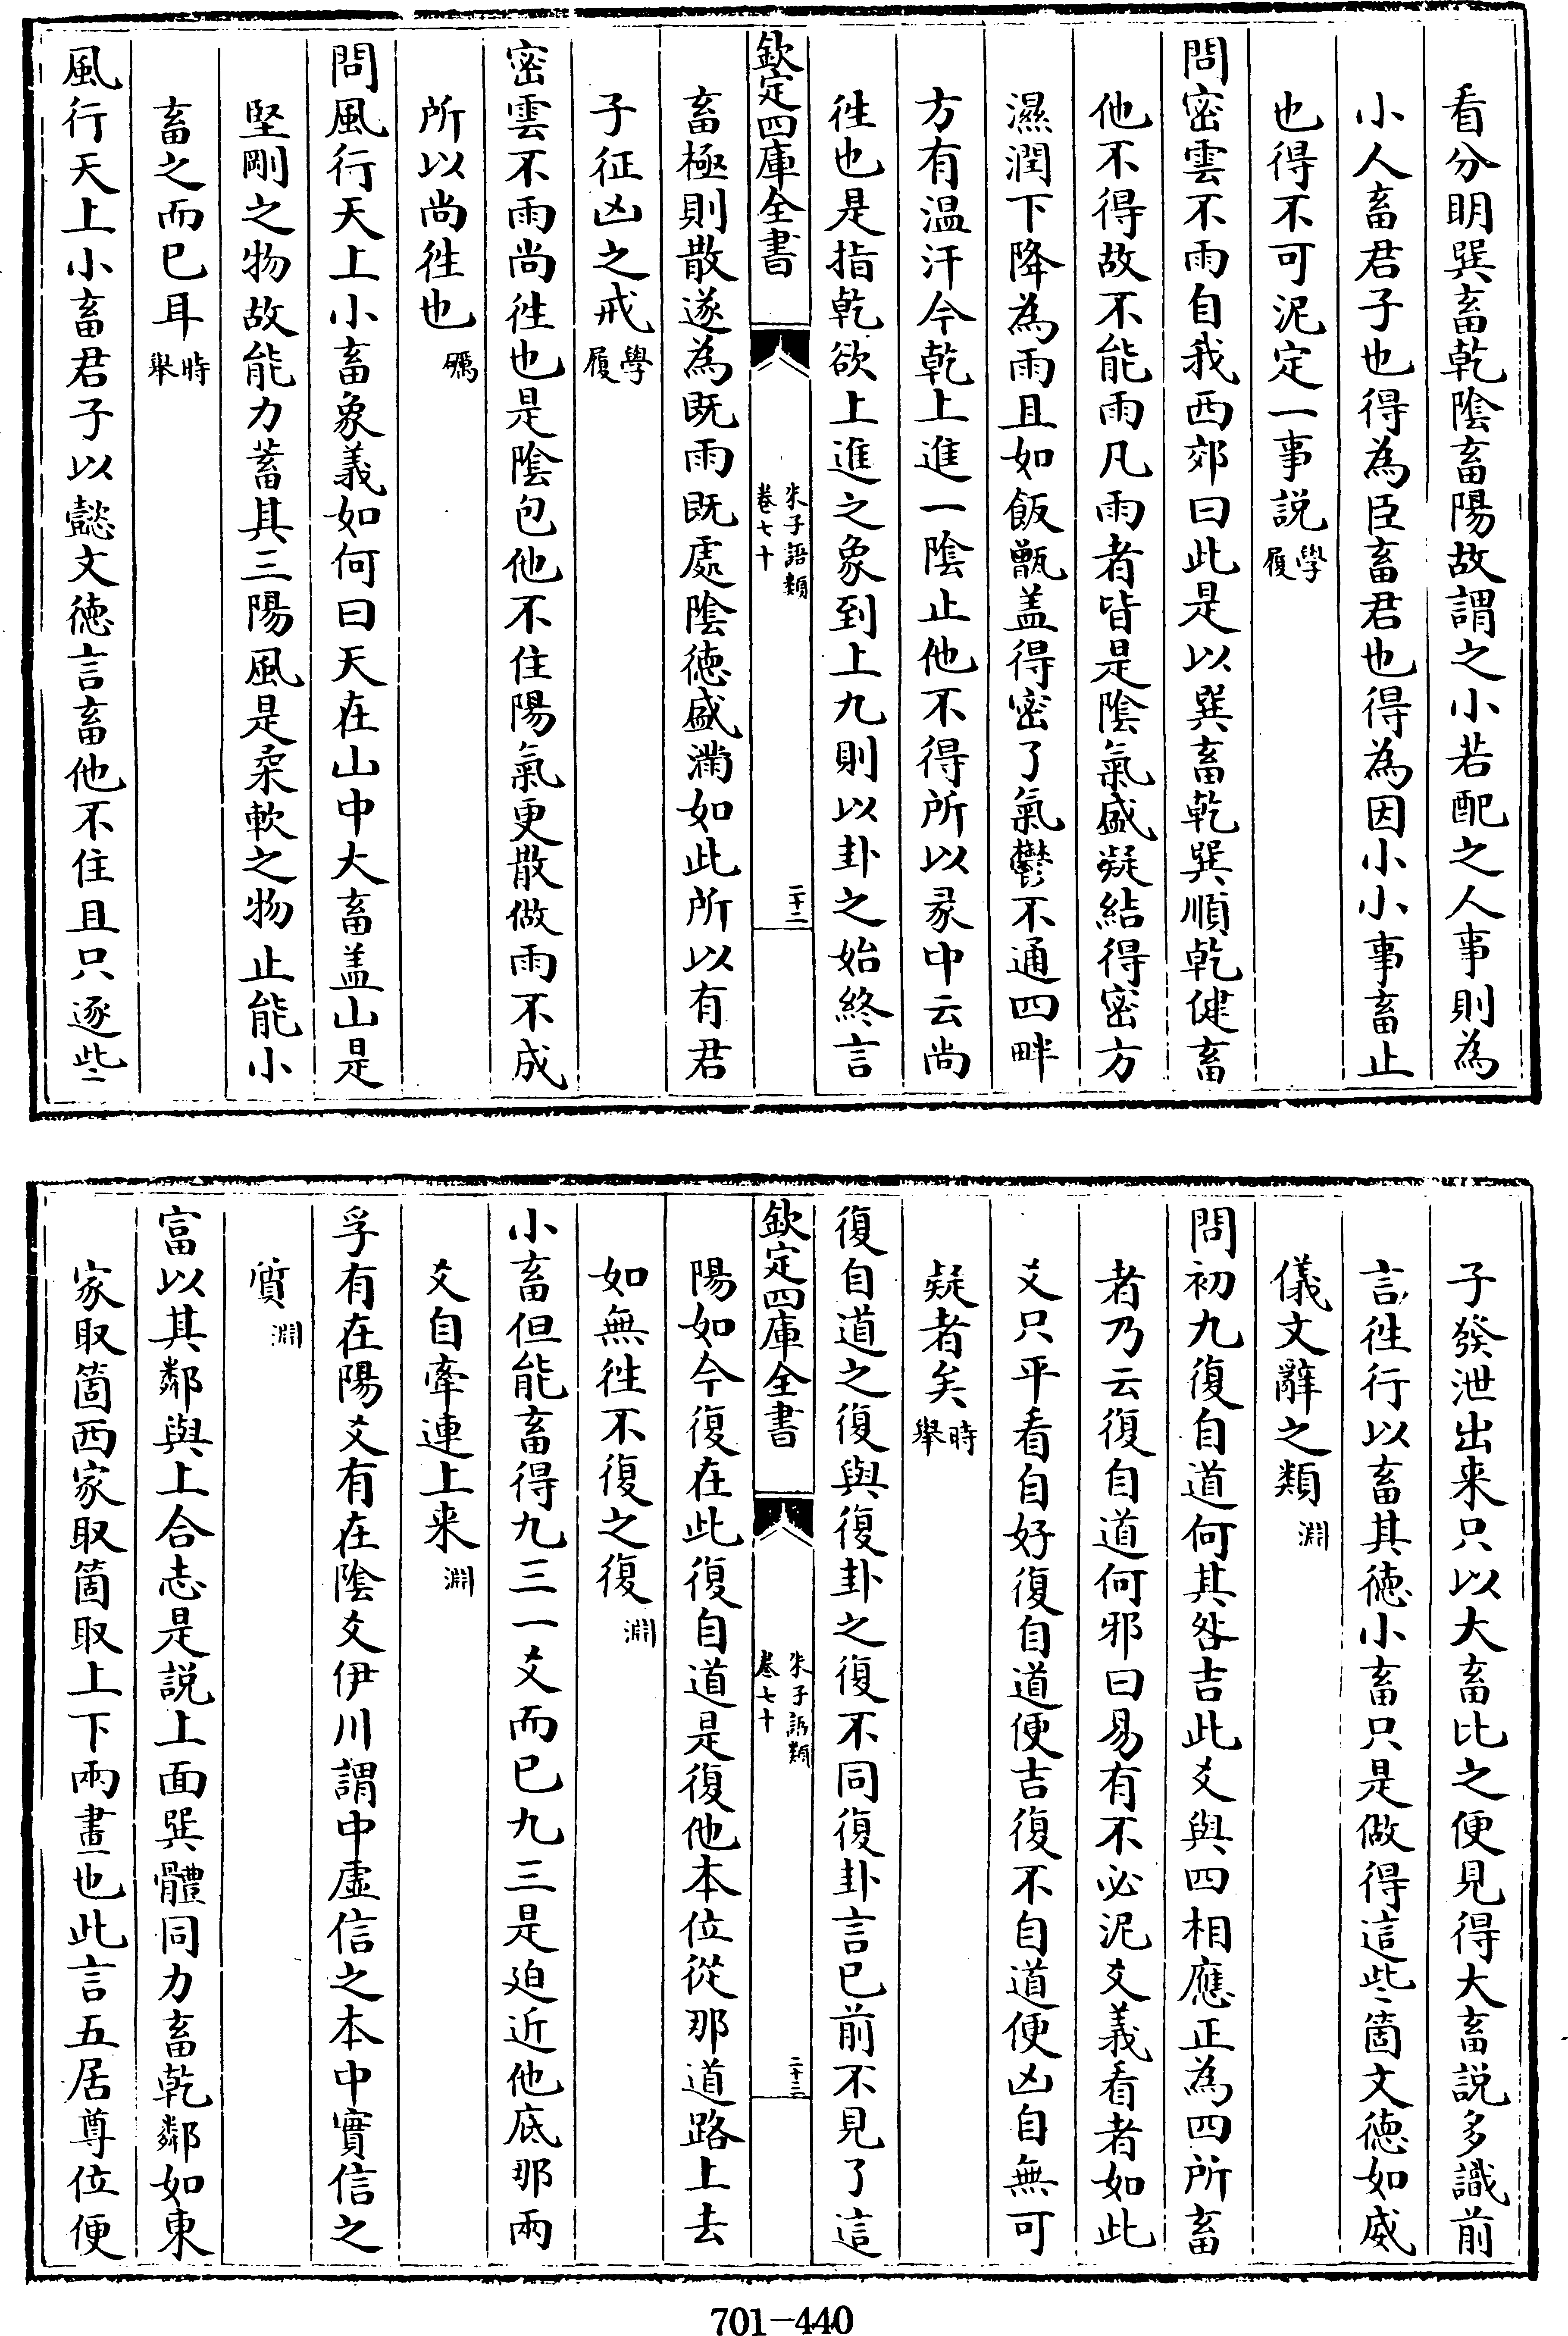 看分明巽畜乾陰畜陽故謂之小若配之人事則為
小人畜君子也得為臣畜君也得為因小小事畜止
也得不可泥定一事説學履
問密雲不雨自我西郊曰此是以巽畜乾巽順乾健畜
他不得故不能雨凡雨者皆是陰氣盛凝結得密方
濕潤下降為雨且如飯甑盖得密了氣鬱不通四畔
方有温汗今乾上進一陰止他不得所以彖中云尚
徃也是指乾欲上進之象到上九則以卦之始終言
欽定四庫全書
朱子語類
卷七十
二十二
畜極則散遂為既雨既處陰徳盛滿如此所以有君
子征凶之戒學履
密雲不雨尚徃也是陰包他不住陽氣更散做雨不成
所以尚徃也礪
問風行天上小畜象義如何曰天在山中大畜盖山是
堅剛之物故能力蓄其三陽風是柔軟之物止能小
畜之而已耳時舉
風行天上小畜君子以懿文徳言畜他不住且只逐些
子發泄出来只以大畜比之便見得大畜説多識前
言徃行以畜其徳小畜只是做得這些箇文徳如威
儀文辭之類淵
問初九復自道何其咎吉此爻與四相應正為四所畜
者乃云復自道何邪曰易有不必泥爻義看者如此
爻只平看自好復自道便吉復不自道便凶自無可
疑者矣時舉
復自道之復與復卦之復不同復卦言已前不見了這
欽定四庫全書
朱子語類
卷七十
二十三
陽如今復在此復自道是復他本位從那道路上去
如無徃不復之復淵
小畜但能畜得九三一爻而已九三是迫近他底那兩
爻自牽連上来淵
孚有在陽爻有在陰爻伊川謂中虚信之本中實信之
質淵
富以其鄰與上合志是説上面巽體同力畜乾鄰如東
家取箇西家取箇取上下兩畫也此言五居尊位便
701-440